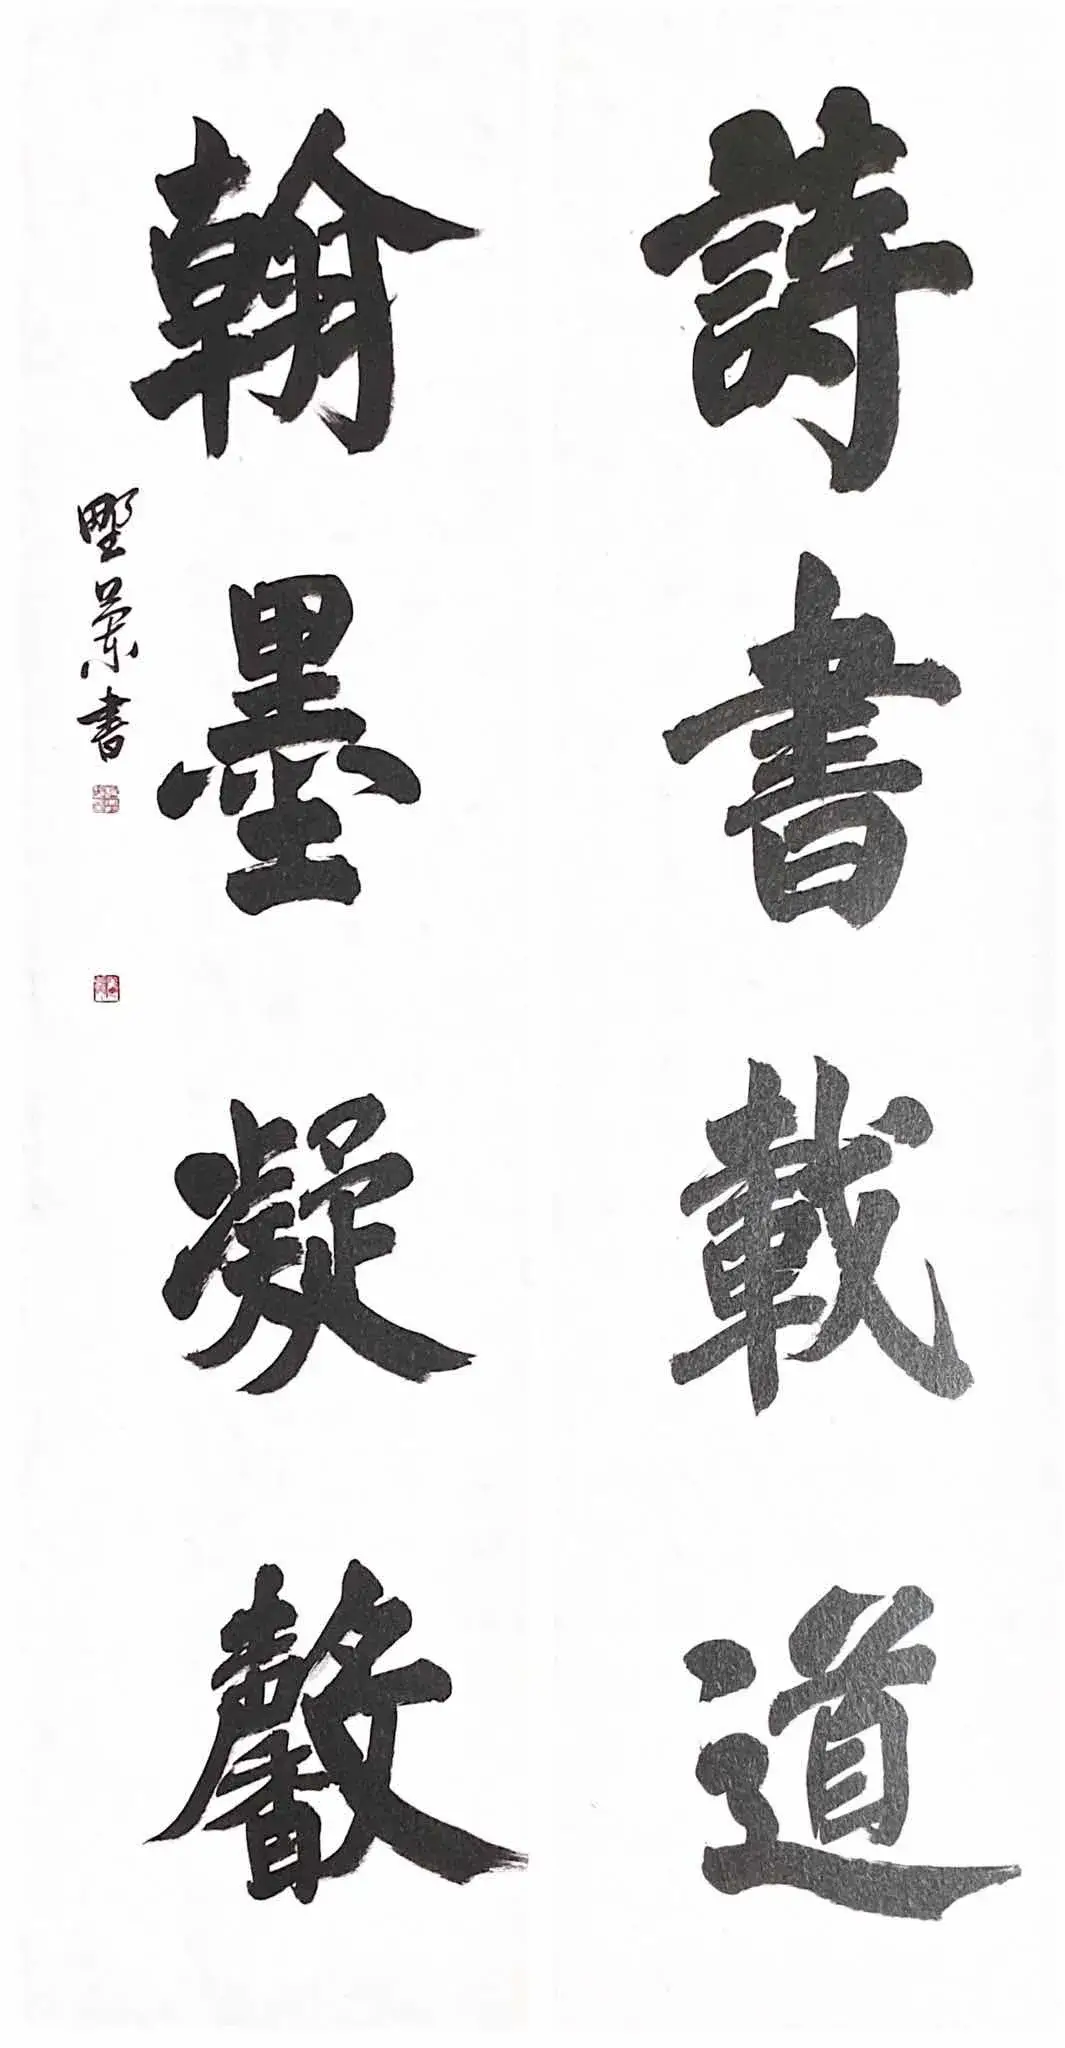 詩書載道
翰墨凝馨
書